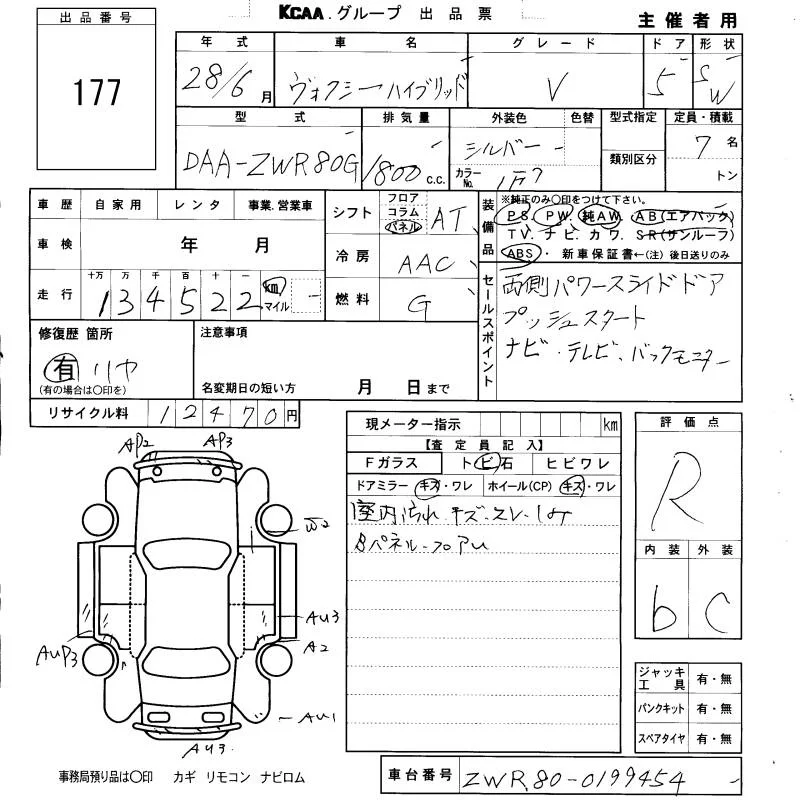 KCAA.グループ 出品票
主催者用
出品番号
177
年式 車名 グレード ドア 形状
28/6月 ヴォクシーハイブリッド V 5 SW
型式 排気量 外装色 色替 型式指定 定員・積載
DAA-ZWR80G 1800 c.c. シルバー 7名
カラーNo. 1F7 類別区分 トン
車歴 自家用 レンタ 事業.営業車
車検 年 月
走行 十万 万 千 百 十 一
134522 km マイル
シフト フロア コラム パネル AT
冷房 AAC
燃料 G
装備品 ※純正のみ〇印をつけて下さい。
PS. PW. 純AW. AB(エアバック)
TV. ナビ. カワ. SR(サンルーフ)
ABS. 新車保証書←(注) 後日送りのみ
セールスポイント
両側パワースライドドア
プッシュスタート
ナビ・テレビ、バックモニター
修復歴 箇所
有 リヤ
(有の場合は〇印を)
注意事項
名変期日の短い方 月 日まで
リサイクル料 12470円
現メーター指示 km
【査定員記入】
Fガラス トビ石 ヒビワレ
ドアミラー キズ・ワレ ホイール(CP) キズ・ワレ
室内汚れ キズ・スレ・
Bパネル・フロア
評価点
R
内装 外装
b C
ジャッキ工具 有・無
パンクキット 有・無
スペアタイヤ 有・無
AP2 AP3
W2
AU3
A2
AUP3
AU1
AU3
事務局預り品は〇印 カギ リモコン ナビロム
車台番号 ZWR80-0199454